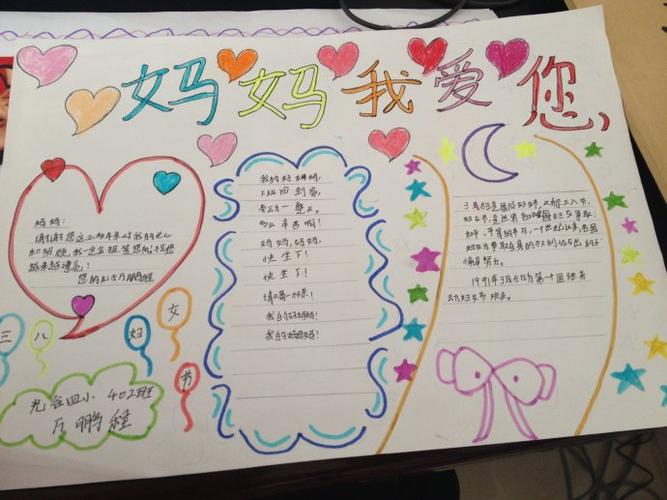 妈妈我爱您
妈妈:
谢谢您这么多年来对我的关心
和照顾,我一定会报答您的,祝您
越来越漂亮!
您的儿子万鹏程
三八妇女节
光谷四小 402班
万鹏程
我的好妈妈,
下班回到家,
劳动了一整天,
多么辛苦啊!
妈妈,妈妈,
快坐下!
快坐下!
请喝一杯茶!
我的好妈妈!
我的好妈妈!
3月8日是国际妇女节,又称三八节,
妇女节,是世界各国妇女争取
和平、平等的节日,一个世纪以来,各国
妇女为争取自身的权利做出了
努力。
1991年3月8日为第十国际劳
动妇女节